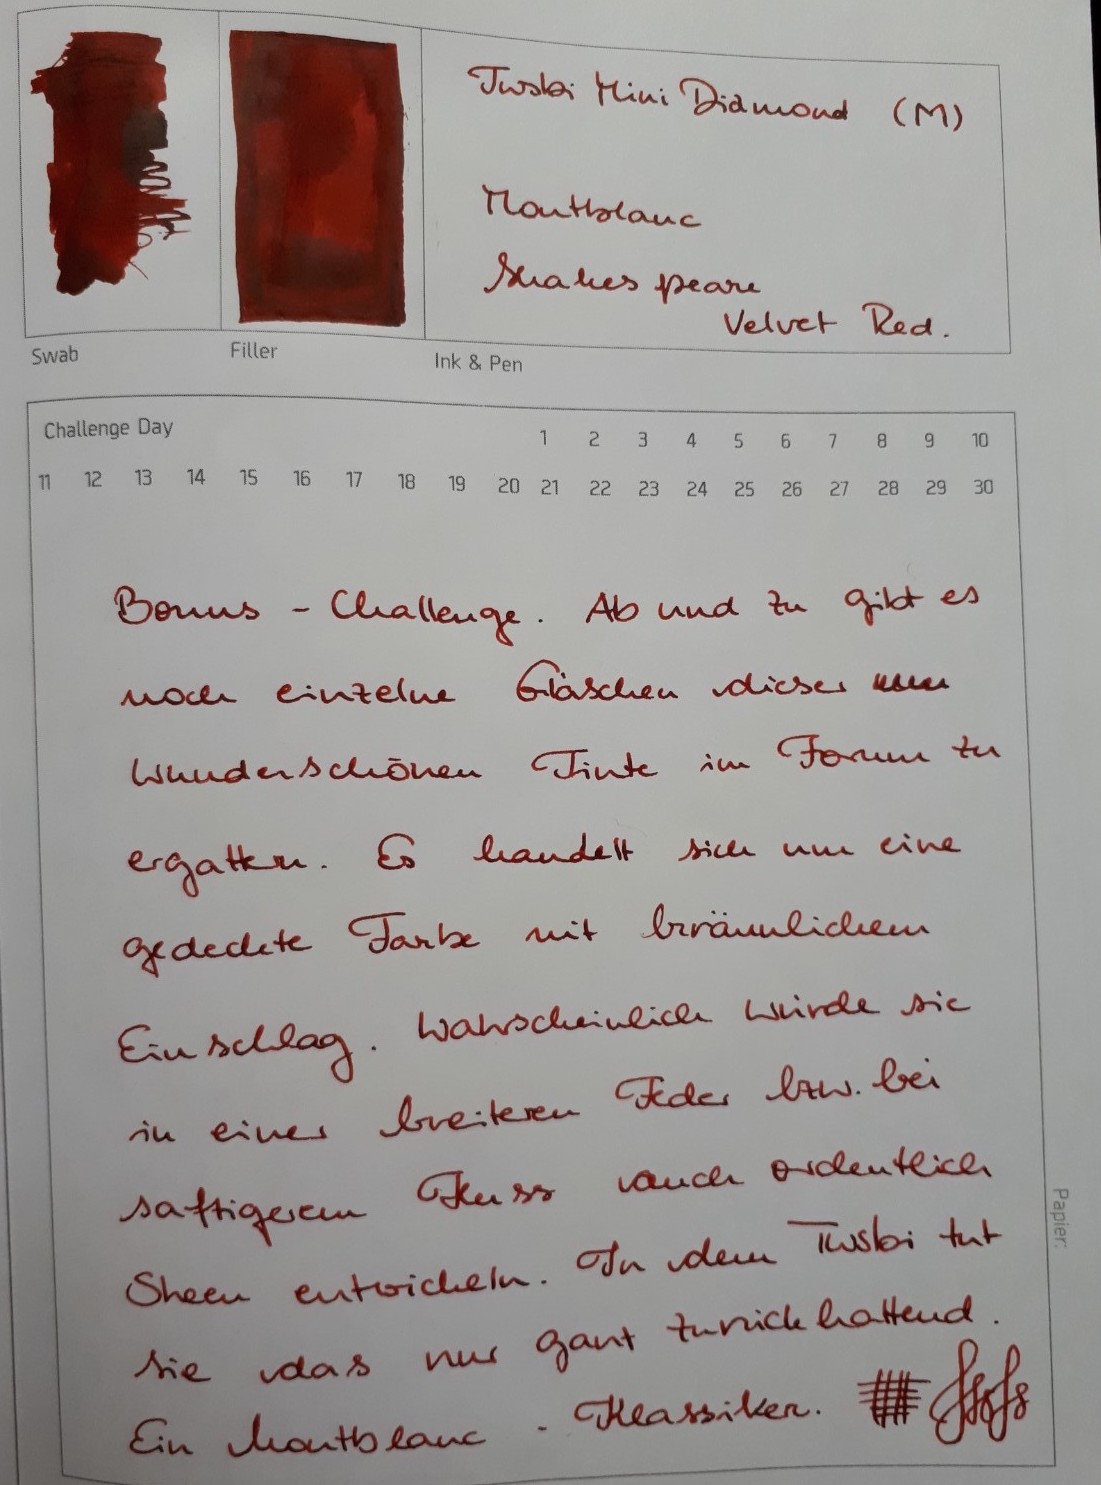 Twsbi Mini Diamond (M)
Montblanc
Shakespeare
Velvet Red.
Swab
Filler
Ink & Pen
Challenge Day
1 2 3 4 5 6 7 8 9 10
11 12 13 14 15 16 17 18 19 20 21 22 23 24 25 26 27 28 29 30
Bonus - Challenge. Ab und zu gibt es
noch einzelne Gläschen dieser
wunderschönen Tinte im Forum zu
ergattern. Es handelt sich um eine
gedeckte Farbe mit bräunlichem
Einschlag. Wahrscheinlich würde sie
in einer breiteren Feder bzw. bei
saftigerem Fluss auch ordentlich
Sheen entwickeln. In dem Twsbi tut
sie das nur ganz zurückhaltend.
Ein Montblanc - Klassiker.
Papier: